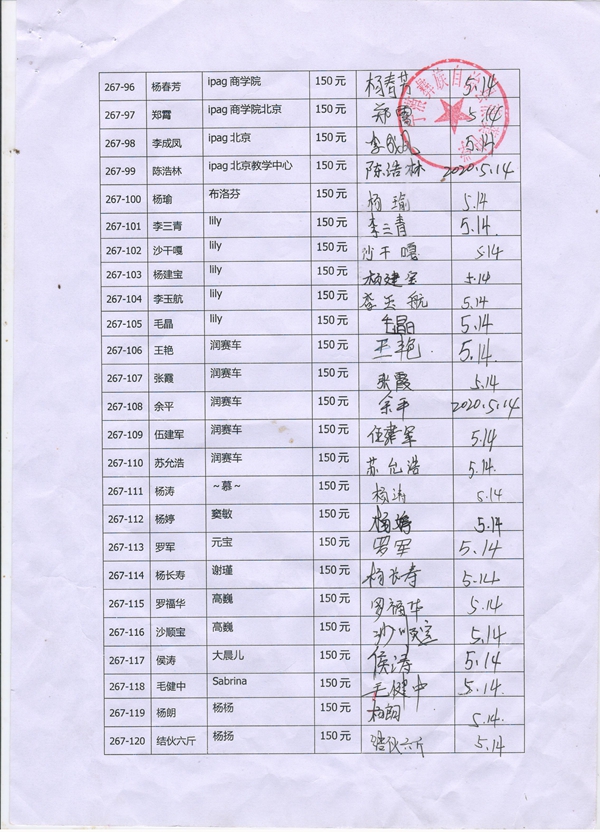 267-96 杨春芳 ipag 商学院 150 元 杨春芳 5.14
267-97 郑霱 ipag 商学院北京 150 元 5.14
267-98 李成凤 ipag 北京 150 元 李成凤 5.14
267-99 陈浩林 ipag 北京教学中心 150 元 陈浩林 2020.5.14
267-100 杨瑜 布洛芬 150 元 杨瑜 5.14
267-101 李三青 lily 150 元 李三青 5.14
267-102 沙干嘎 lily 150 元 沙干嘎 5.14
267-103 杨建宝 lily 150 元 杨建宝 5.14
267-104 李玉航 lily 150 元 李玉航 5.14
267-105 毛晶 lily 150 元 毛晶 5.14
267-106 王艳 润赛车 150 元 王艳 5.14.
267-107 张霞 润赛车 150 元 张霞 5.14
267-108 余平 润赛车 150 元 余平 2020.5.14
267-109 伍建军 润赛车 150 元 伍建军 5.14
267-110 苏允浩 润赛车 150 元 苏允浩 5.14.
267-111 杨涛 ～慕～ 150 元 杨涛 5.14
267-112 杨婷 窦敏 150 元 杨婷 5.14
267-113 罗军 元宝 150 元 罗军 5.14
267-114 杨长寿 谢瑾 150 元 杨长寿 5.14
267-115 罗福华 高巍 150 元 罗福华 5.14
267-116 沙顺宝 高巍 150 元 沙顺宝 5.14
267-117 侯涛 大晨儿 150 元 侯涛 5.14
267-118 毛健中 Sabrina 150 元 毛健中 5.14
267-119 杨朗 杨杨 150 元 杨朗 5.14
267-120 结伙六斤 杨扬 150 元 结伙六斤 5.14